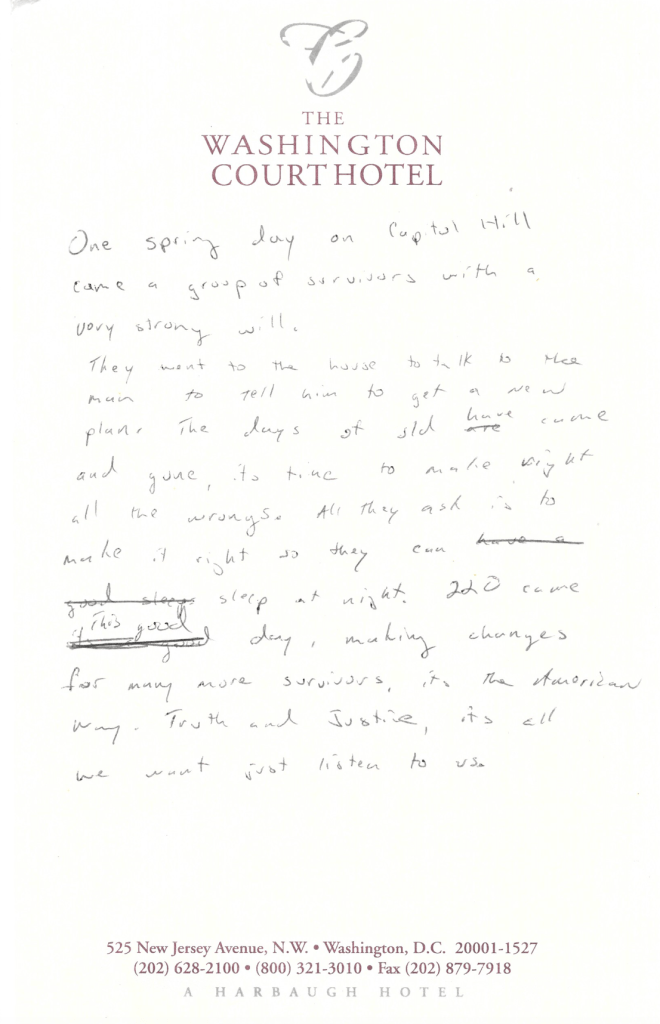 THE
WASHINGTON
COURT HOTEL
One spring day on Capitol Hill
came a group of survivors with a
very strong will.
They went to the house to talk to the
man to tell him to get a new
plan. The days of old are have came
and gone, its time to make right
all the wrongs. All they ask is to
make it right so they can have a
good sleep sleep at night. 220 came
This good day, making changes
for many more survivors, its the American
way. Truth and Justice, its all
we want just listen to us.
525 New Jersey Avenue, N.W. • Washington, D.C. 20001-1527
(202) 628-2100 • (800) 321-3010 • Fax (202) 879-7918
A HARBAUGH HOTEL